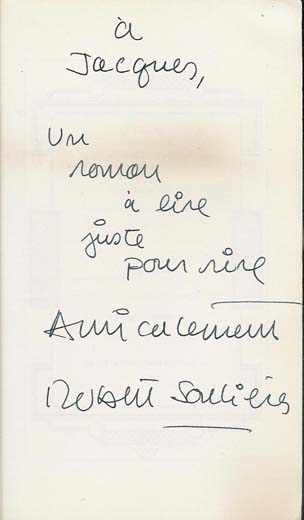 à
Jacques,
un
roman
à lire
juste
pour rire
Amicalement
Robert Soulières